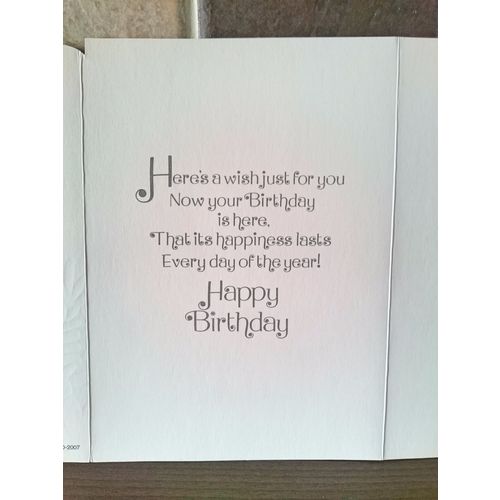 Here's a wish just for you
Now your Birthday
is here,
That its happiness lasts
Every day of the year!
Happy
Birthday
-2007